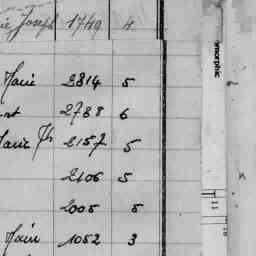 Joseph 1749 4
Marie 2814 5
2788 6
Marie Th 2157 5
2106 5
2005 5
Marie 1052 3
omorphic
11